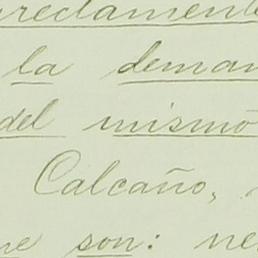 rectamente
la deman
del mismo
Calcaño,
ne son: ne